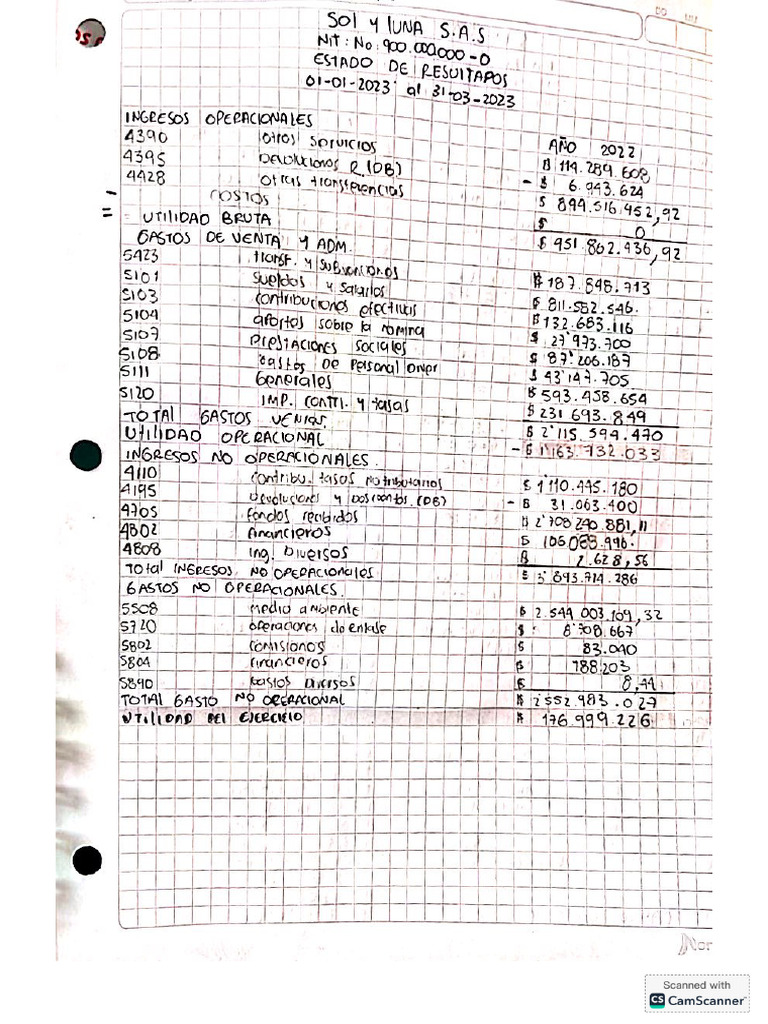 SOl y lUNA S.A.S
Nit: No: 900.000.000-0
ESTADO DE RESUlTADOS
01-01-2023 al 31-03-2023
INGRESOS OPERACIONALES
AÑO 2022
4390 otros servicios $ 114.289.608
4395 Devoluciones R.(DB) - $ 6.943.624
4428 otras transferencias $ 844.516.452,92
- COSTOS $ 0
= UTILIDAD BRUTA $ 951.862.436,92
GASTOS DE VENTA y ADM.
5423 transf. y subvenciones $ 187.848.713
5101 sueldos y salarios $ 811.582.546.
5103 contribuciones efectivas $ 132.683.116
5104 aportes sobre la nomina $ 27'973.700
5107 prestaciones sociales $ 87'206.187
5108 Gastos de personal $ 43'147.705
5111 Generales $ 593.458.654
5120 IMP. CONTI. y tasas $ 231 693.849
TOTAL GASTOS VENTAS. $ 2'115.594.470
UtilIDAD OPERACIONAL - $ 1'163.732.033
INGRESOS NO OPERACIONALES.
4110 contribu. tasas no tributarios $ 1'110.445.180
4195 devoluciones y Descuentos.(DB) - $ 31.063.400
4705 fondos recibidos $ 2'708 240.881,11
4802 financieros $ 106 083.996.
4808 ing. Diversos $ 7.628,56
TOtal INGRESOS NO OPERACIONAles $ 3'893.714.286
GASTOS NO OPERACIONALES.
5508 medio ambiente $ 2.544 003.109,32
5720 operaciones de enlase $ 8'708.667
5802 comisiones $ 83.040
5804 financieros $ 188203
5890 Gastos Diversos $ 8,44
TOTAL GASTO NO OPERACIONAL $ 2'552.983.027
UTILIDAD DEL EJERCICIO $ 176.999.226
Nor
Scanned with
CS CamScanner